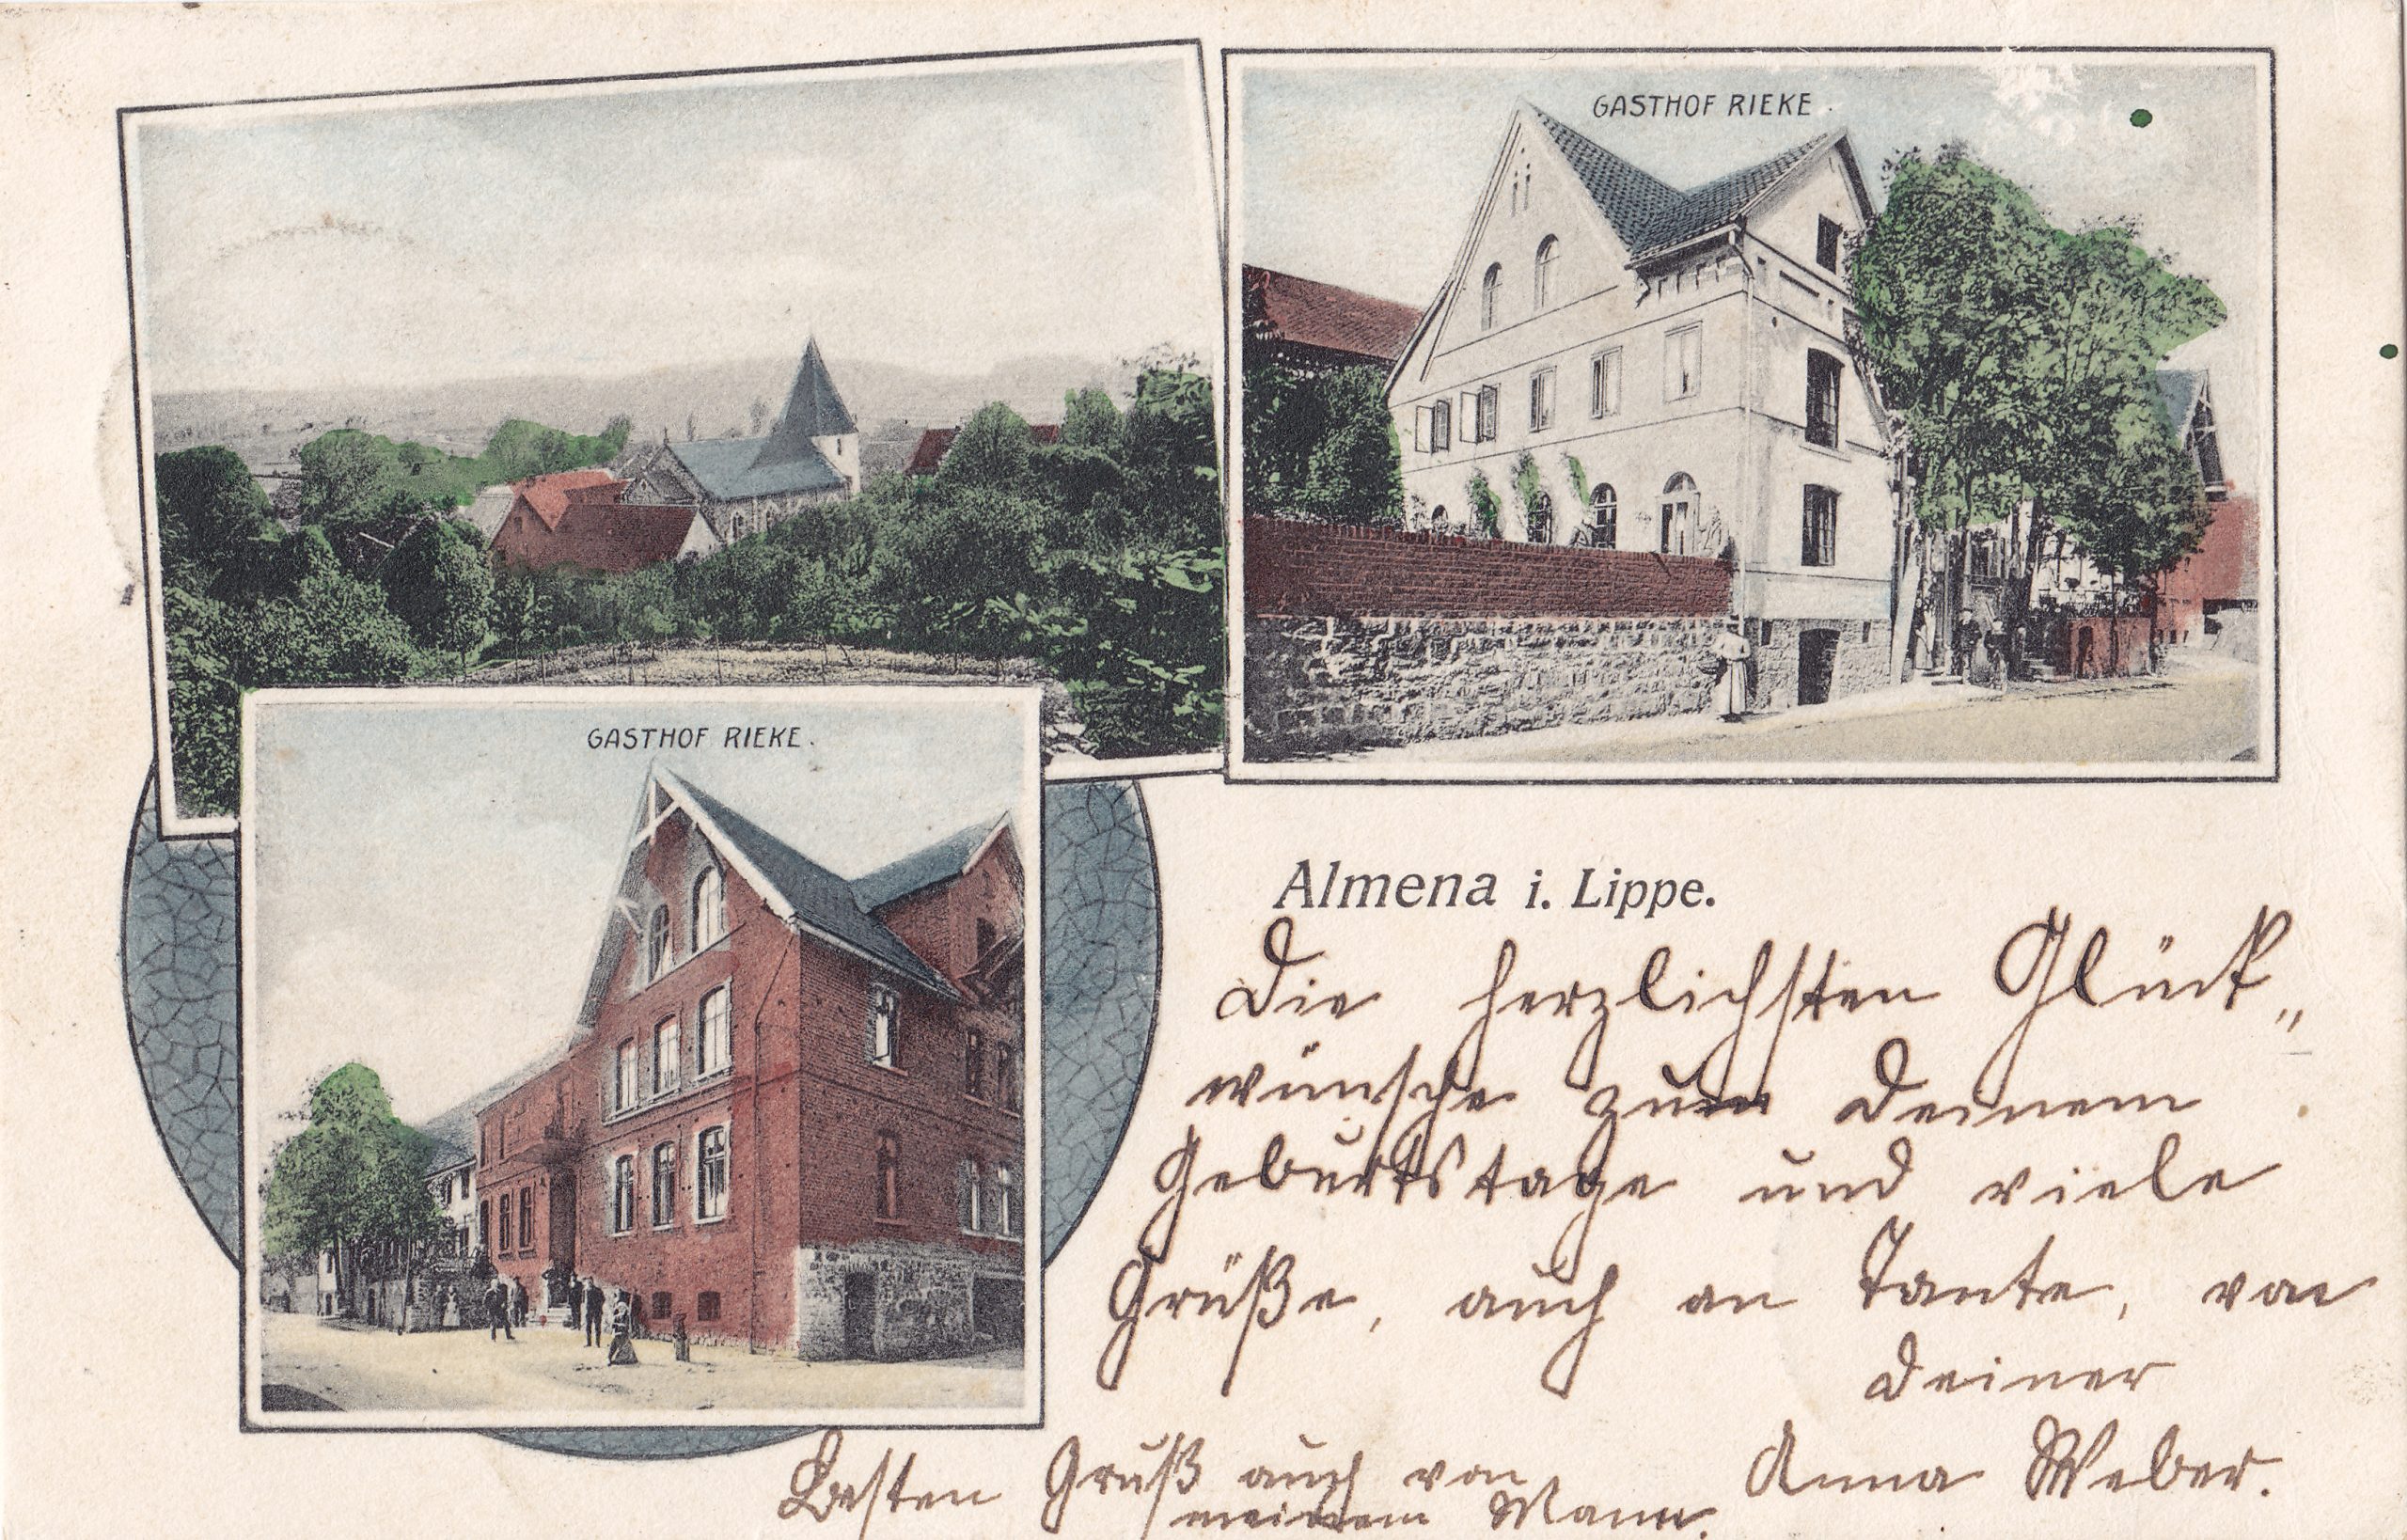 GASTHOF RIEKE.
GASTHOF RIEKE.
Almena i. Lippe.
Die herzlichsten Glück„
wünsche zum Deinem
Geburtstage und viele
Grüße, auch an Tante, von
Deiner
Anna Weber.
Besten Gruß auch von
meinem Mann.